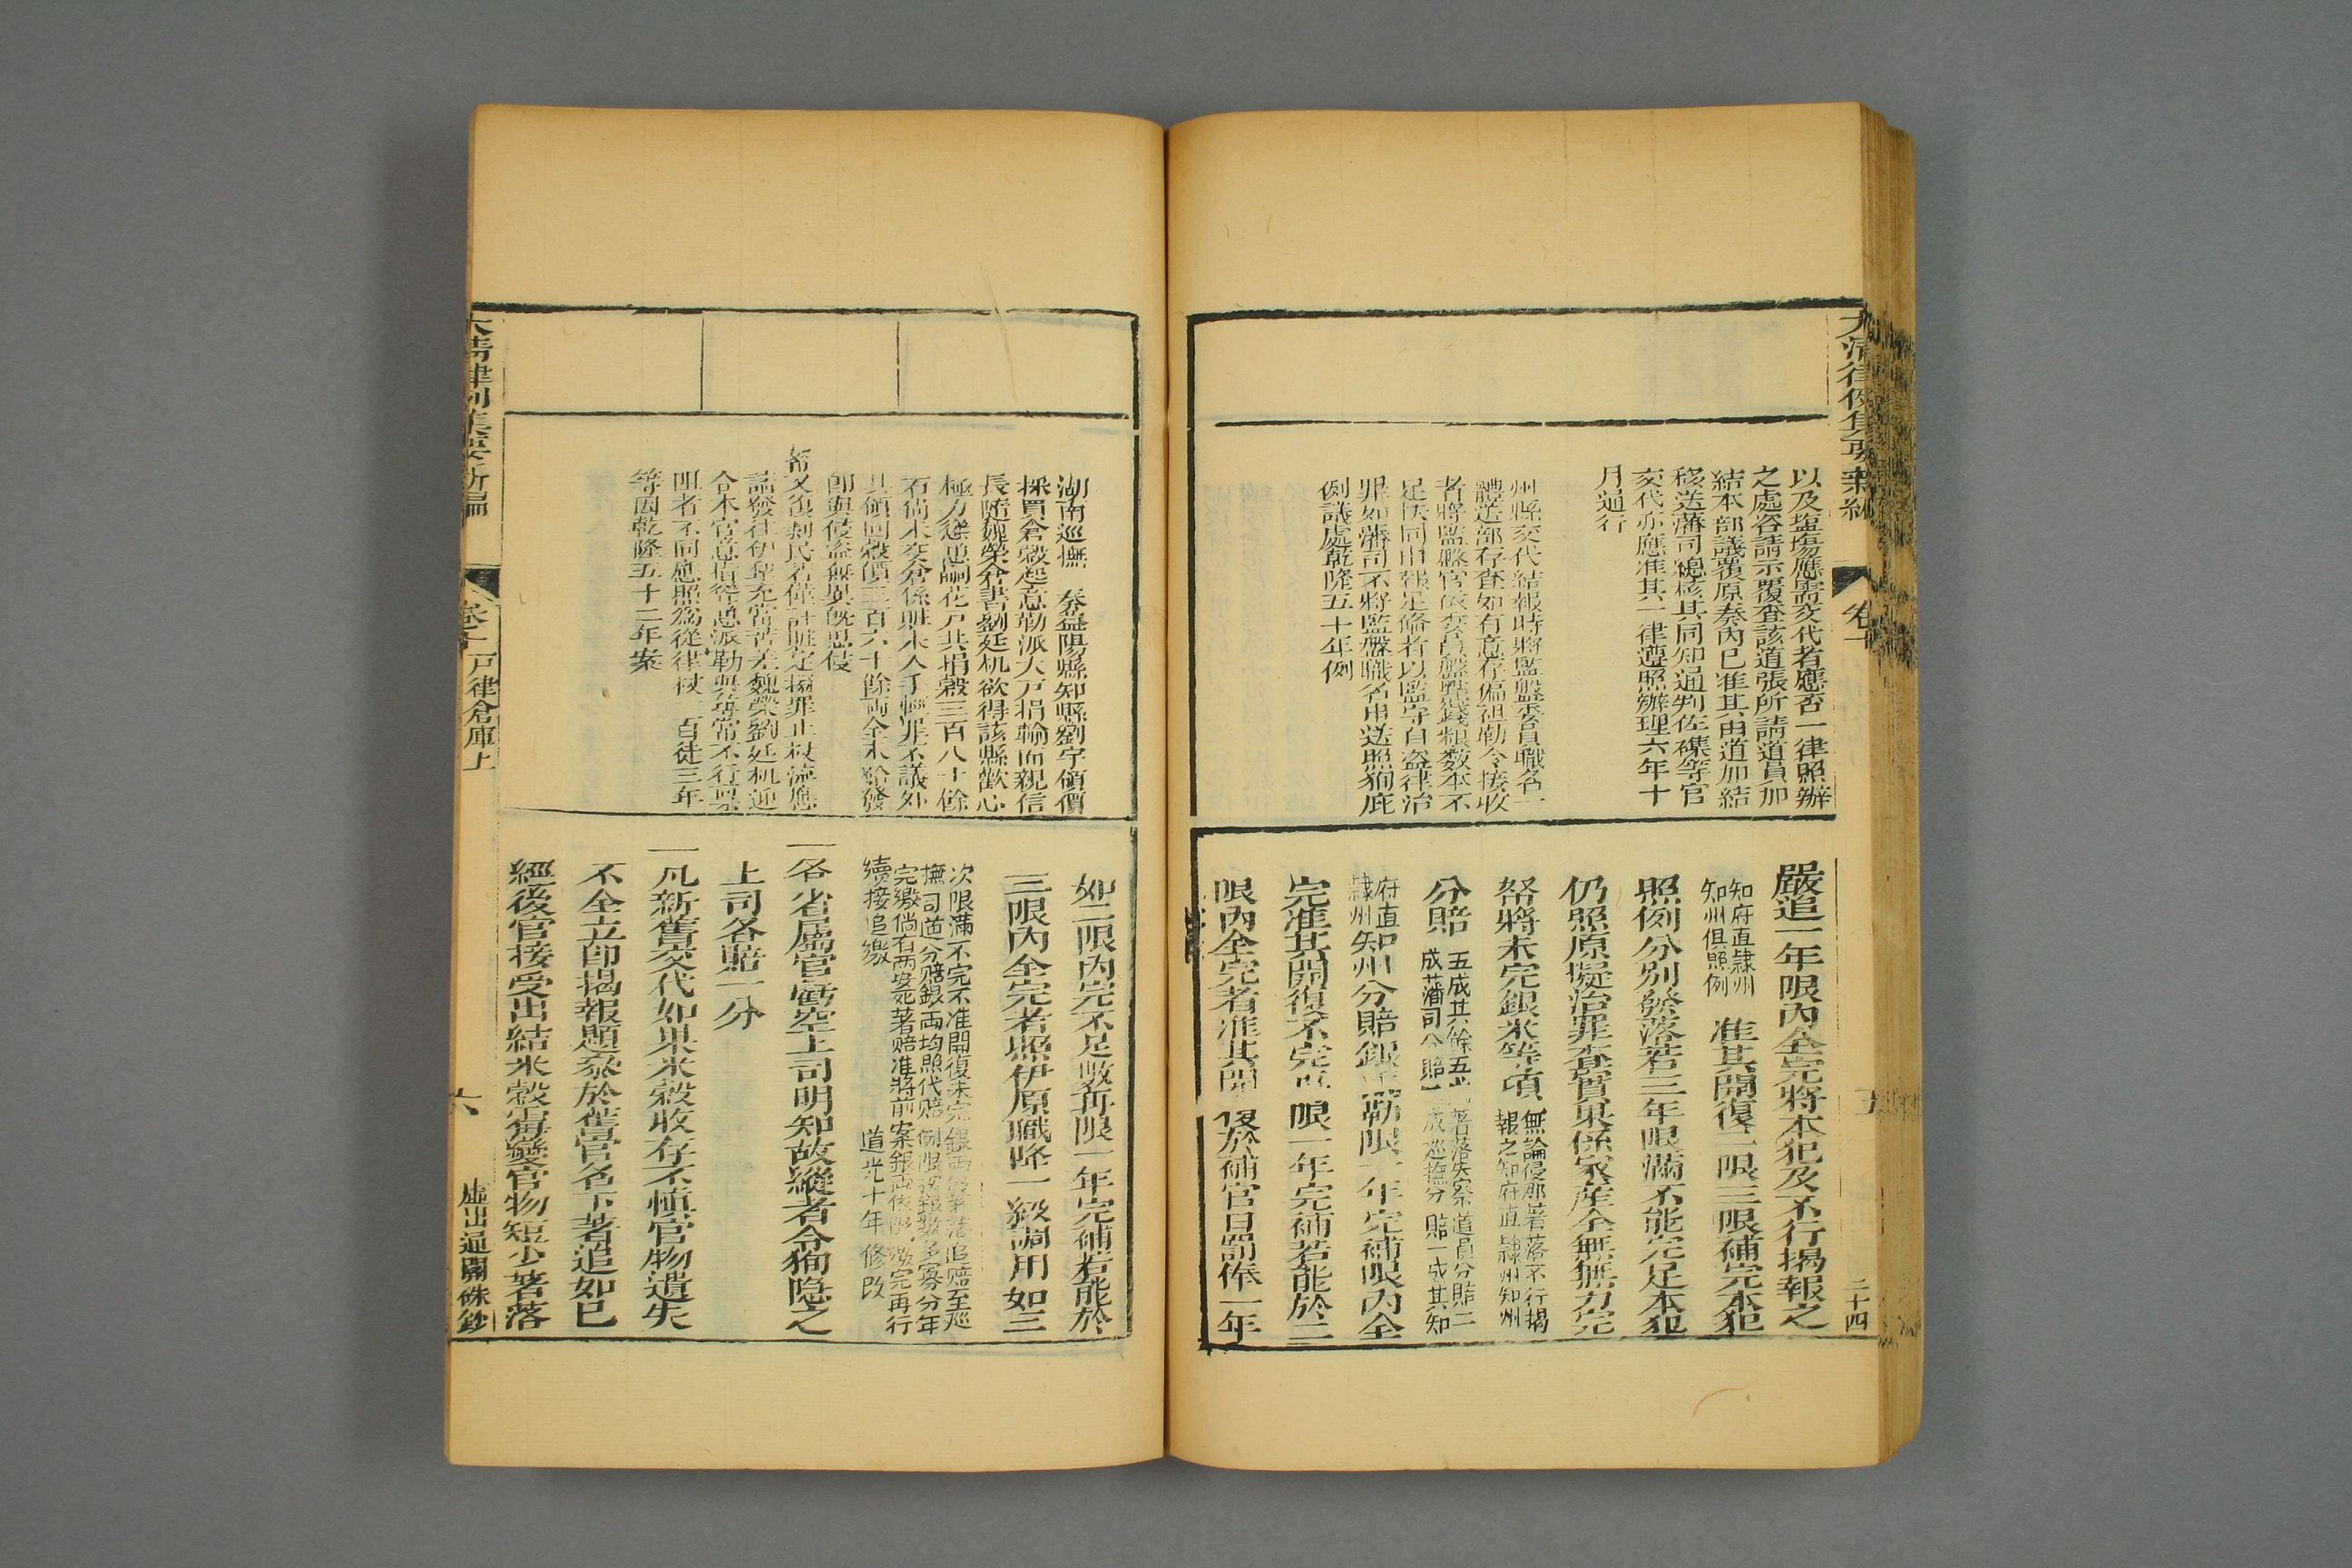 大清律例集要新編
卷十
二十四
以及塩塲應需交代者應否一律照辦
之處咨請示覆查該道張所請道員加
結本部議覆原奏內已准其由道加結
移送藩司總核其同知通判佐襍等官
交代亦應准其一律遵照辦理六年十
月通行
州縣交代結報時將監盤委員職名一
體送部存查如有意存偏袒勒令接收
者將監盤官
足
罪如藩司不將監盤職名申送照狥庇
例議處乾隆五十年例
嚴追一年限內全完將本犯及不行揭報之
知府直隷州
知州俱照例
准其開復二限三限補完本犯
照例分別發落若三年限滿不能完足本犯
仍照原擬治罪查實果係家産全無無力完
帑將未完銀米等項
無論侵那著落不行揭
報之知府直隷州知州
分賠
五成其餘五成著落失察道員分賠二
成藩司分賠一成巡撫分賠一成其知
府直
隷州
知州分賠銀 勒限一年完補限內全
完准其開復不完再限一年完補若能於二
限內全完者准其開復於補官日罰俸一年
湖南巡撫 奏益陽縣知縣劉宇傾價
採買倉穀起意勒派大戶捐輸而親信
長隨魏榮倉書劉廷机欲得該縣歡心
極力慫慂嗣花戶共捐穀三百八十餘
石尚未交倉係賍未入手輕罪不議外
其傾回穀價三百六十餘両全未給發
卽與侵盗無異旣思侵
帑又復剥民若僅計賍定擬罪止杖流應
請發往伊犂充當苦差魏榮劉延机迎
合本官意指慫慂派勒與尋常不行禀
阻者不同應照為從律杖一百徒三年
等因乾隆五十二年案
如二限內完不足數再限一年完補若能於
三限內全完者照伊原職降一級調用如三
次限滿不完不准開復未完銀両仍著落追賠至巡
撫司道分賠銀両均照代賠例限按銀數多寡分年
完繳倘有両案著賠准將前案銀両依限繳完再行
續接追繳 道光十年修改
一各省屬官虧空上司明知故縱者令狥隱之
上司各賠一分
一凡新舊交代如果米穀收存不慎官物遺失
不全立卽揭報題叅於舊官名下著追如已
經後官接受出結米穀霉變官物短少著落
大清律例集要新編
卷十一戶律倉庫上
六
虛出通關硃鈔